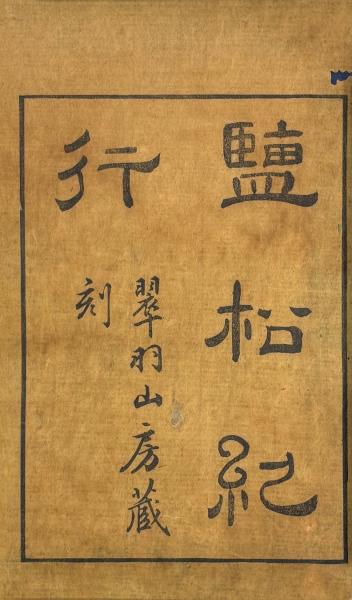 鹽松紀
行
翠羽山房藏
刻